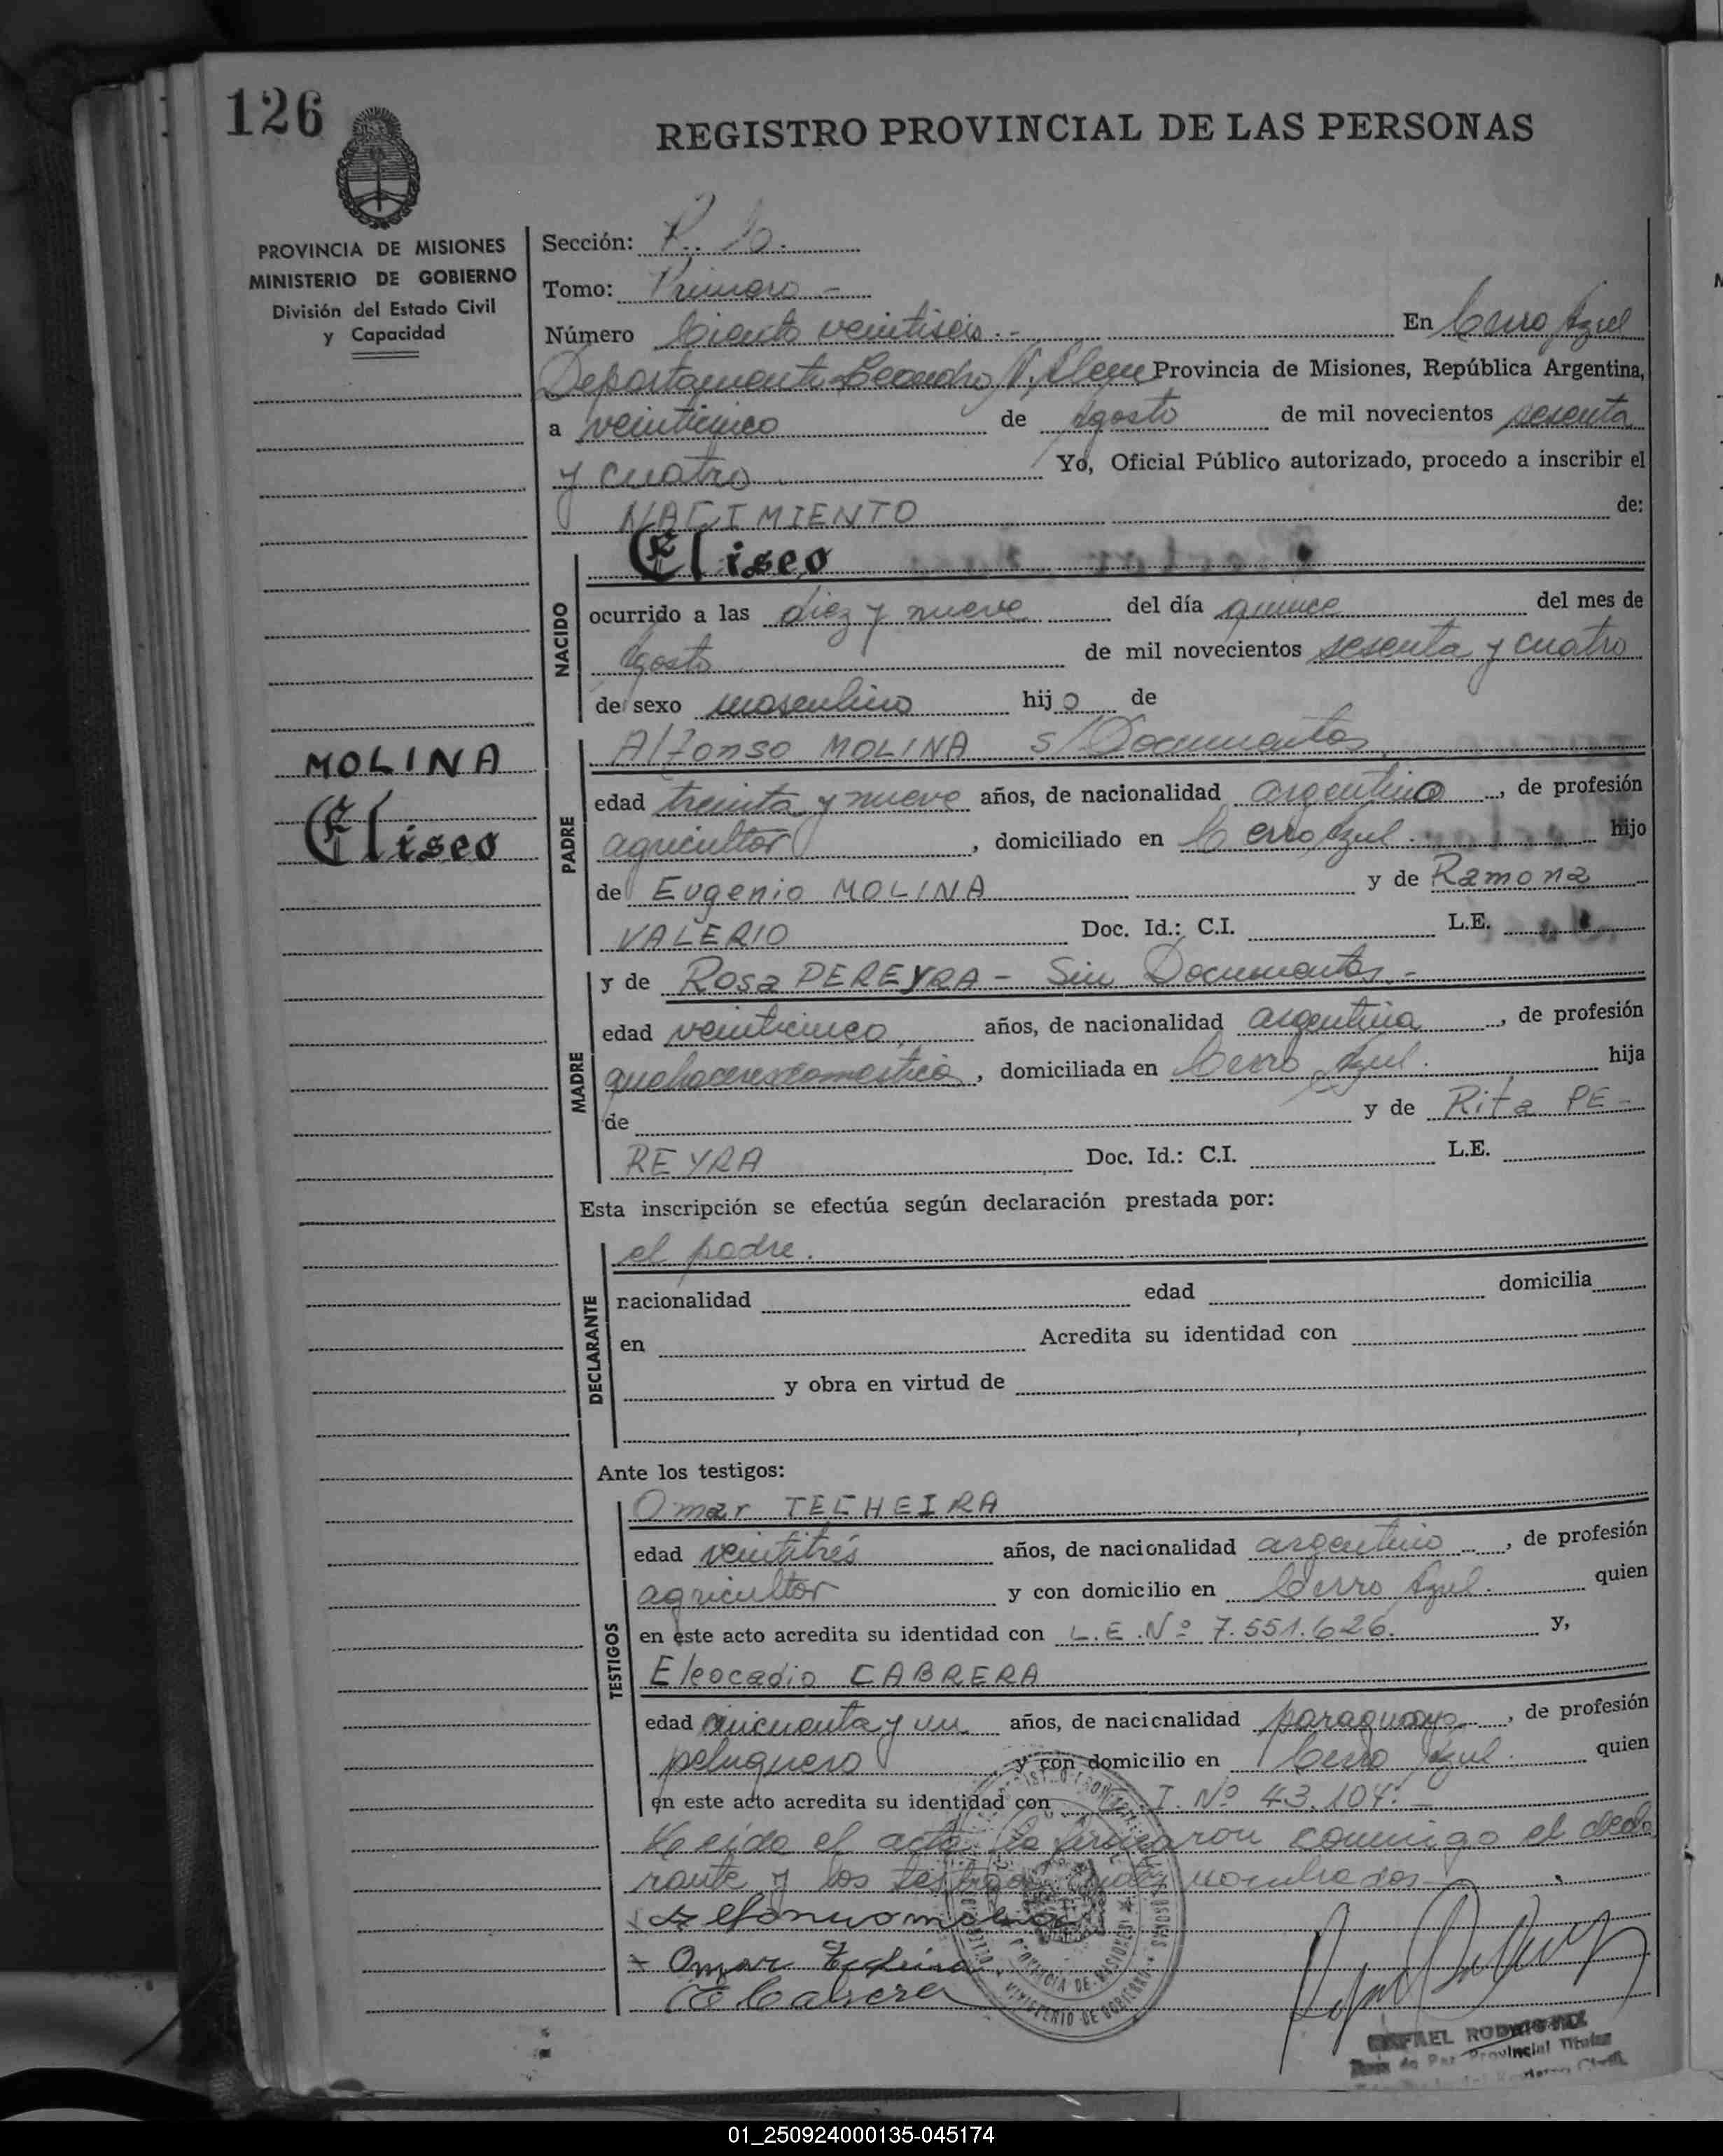 126
REGISTRO PROVINCIAL DE LAS PERSONAS
PROVINCIA DE MISIONES
MINISTERIO DE GOBIERNO
División del Estado Civil
y Capacidad
Sección:
Tomo: Primero -
Número Ciento veintiseis.- En Cerro Azul
Departamento Leandro N. Alem Provincia de Misiones, República Argentina,
a veinticinco de Agosto de mil novecientos sesenta
y cuatro Yo, Oficial Público autorizado, procedo a inscribir el
NACIMIENTO de:
NACIDO
Eliseo
ocurrido a las diez y nueve del día quince del mes de
Agosto de mil novecientos sesenta y cuatro
de sexo masculino hijo de
MOLINA
Eliseo
PADRE
Alfonso MOLINA s/Documentos
edad treinta y nueve años, de nacionalidad argentino, de profesión
agricultor, domiciliado en Cerro Azul. hijo
de Eugenio MOLINA y de Ramona
VALERIO Doc. Id.: C.I. L.E.
MADRE
y de Rosa PEREYRA - Sin Documentos.-
edad veinticinco años, de nacionalidad argentina, de profesión
quehaceres domestico, domiciliada en Cerro Azul. hija
de y de Rita PE-
REYRA Doc. Id.: C.I. L.E.
Esta inscripción se efectúa según declaración prestada por:
DECLARANTE
el padre.
nacionalidad edad domicilia
en Acredita su identidad con
y obra en virtud de
Ante los testigos:
TESTIGOS
Omar TECHEIRA
edad veintitrés años, de nacionalidad argentino, de profesión
agricultor y con domicilio en Cerro Azul. quien
en este acto acredita su identidad con L.E.Nº 7.551.626. y,
Eleocadio CABRERA
edad cincuenta y un años, de nacionalidad paraguayo, de profesión
peluquero y con domicilio en Cerro Azul. quien
en este acto acredita su identidad con C.I. Nº 43.104.-
Leida el acta la firmaron conmigo el decla
rante y los testigos antes nombrados
Alfonso molina
Omar Techeira
E Cabrera
PROVINCIA DE MISIONES
MINISTERIO DE GOBIERNO
RAFAEL RODRIGUEZ
Juez de Paz Provincial Titular
01_250924000135-045174